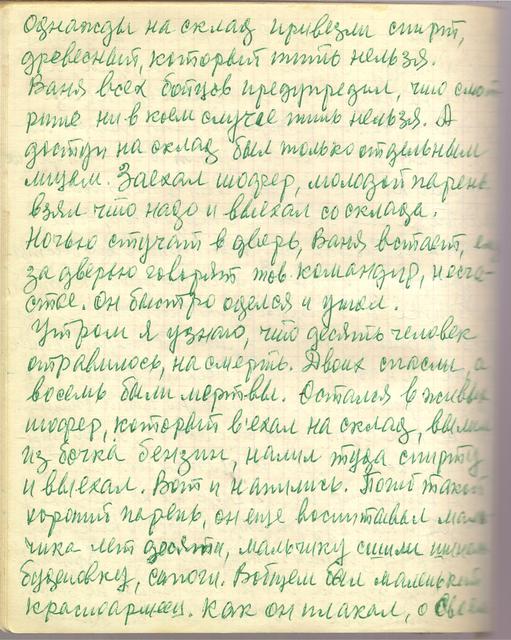 однажды на склад привезли спирт,
древесный, который пить нельзя.
Ваня всех бойцов предупредил, что смот
рите ни в коем случае пить нельзя. А
доступ на склад был только отдельным
лицам. Заехал шофер, молодой парень
взял что надо и выехал со склада.
Ночью стучат в дверь, Ваня встает,
за дверью говорят тов. командир, несча-
стье. он быстро оделся и ушел.
Утром я узнаю, что десять человек
отравилось, на смерть. Двоих спасли, а
восемь были мертвы. Остался в живых
шофер, который в'ехал на склад, вылил
из бочка бензин, налил туда спирту
и выехал. Вот и напились. Погиб такой
хороший парень, он еще воспитывал маль
чика лет десяти, мальчику сшили
буденовку, сапоги. Вобщем был маленький
красноармеец. Как он плакал, о своем